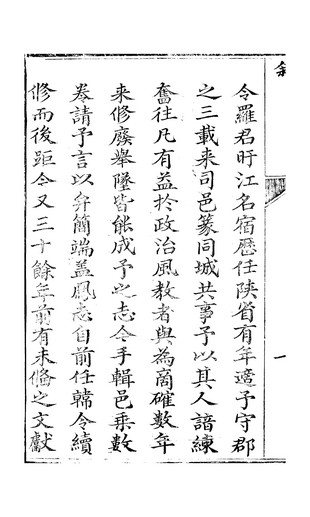 令羅君旴江名宿歷任陝省有年適予守郡
之三載来司邑篆同城共事予以其人諳練
奮往凡有益於政治風教者與為商確數年
来修廢舉墜皆能成予之志今手輯邑乗數
卷請予言以弁簡端盖鳳志自前任韓令續
修而後距今又三十餘年前有未備之文獻
一